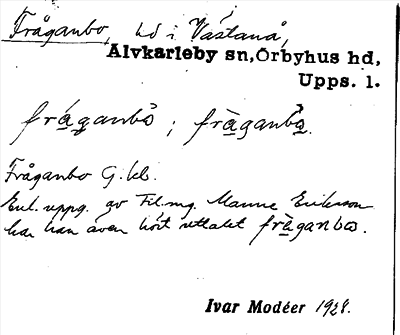 Fråganbo, hd i Västanå,
Älvkarleby sn, Örbyhus hd,
Upps. l.
frá̱ga̱nbȯ ; frà̱ganbå̱.
Fråganbo G. kl.
Enl. uppg. av Fil. mg. Manne Eriksson
har han även hört uttalet frà̱ganbo.
Ivar Modéer 1928.